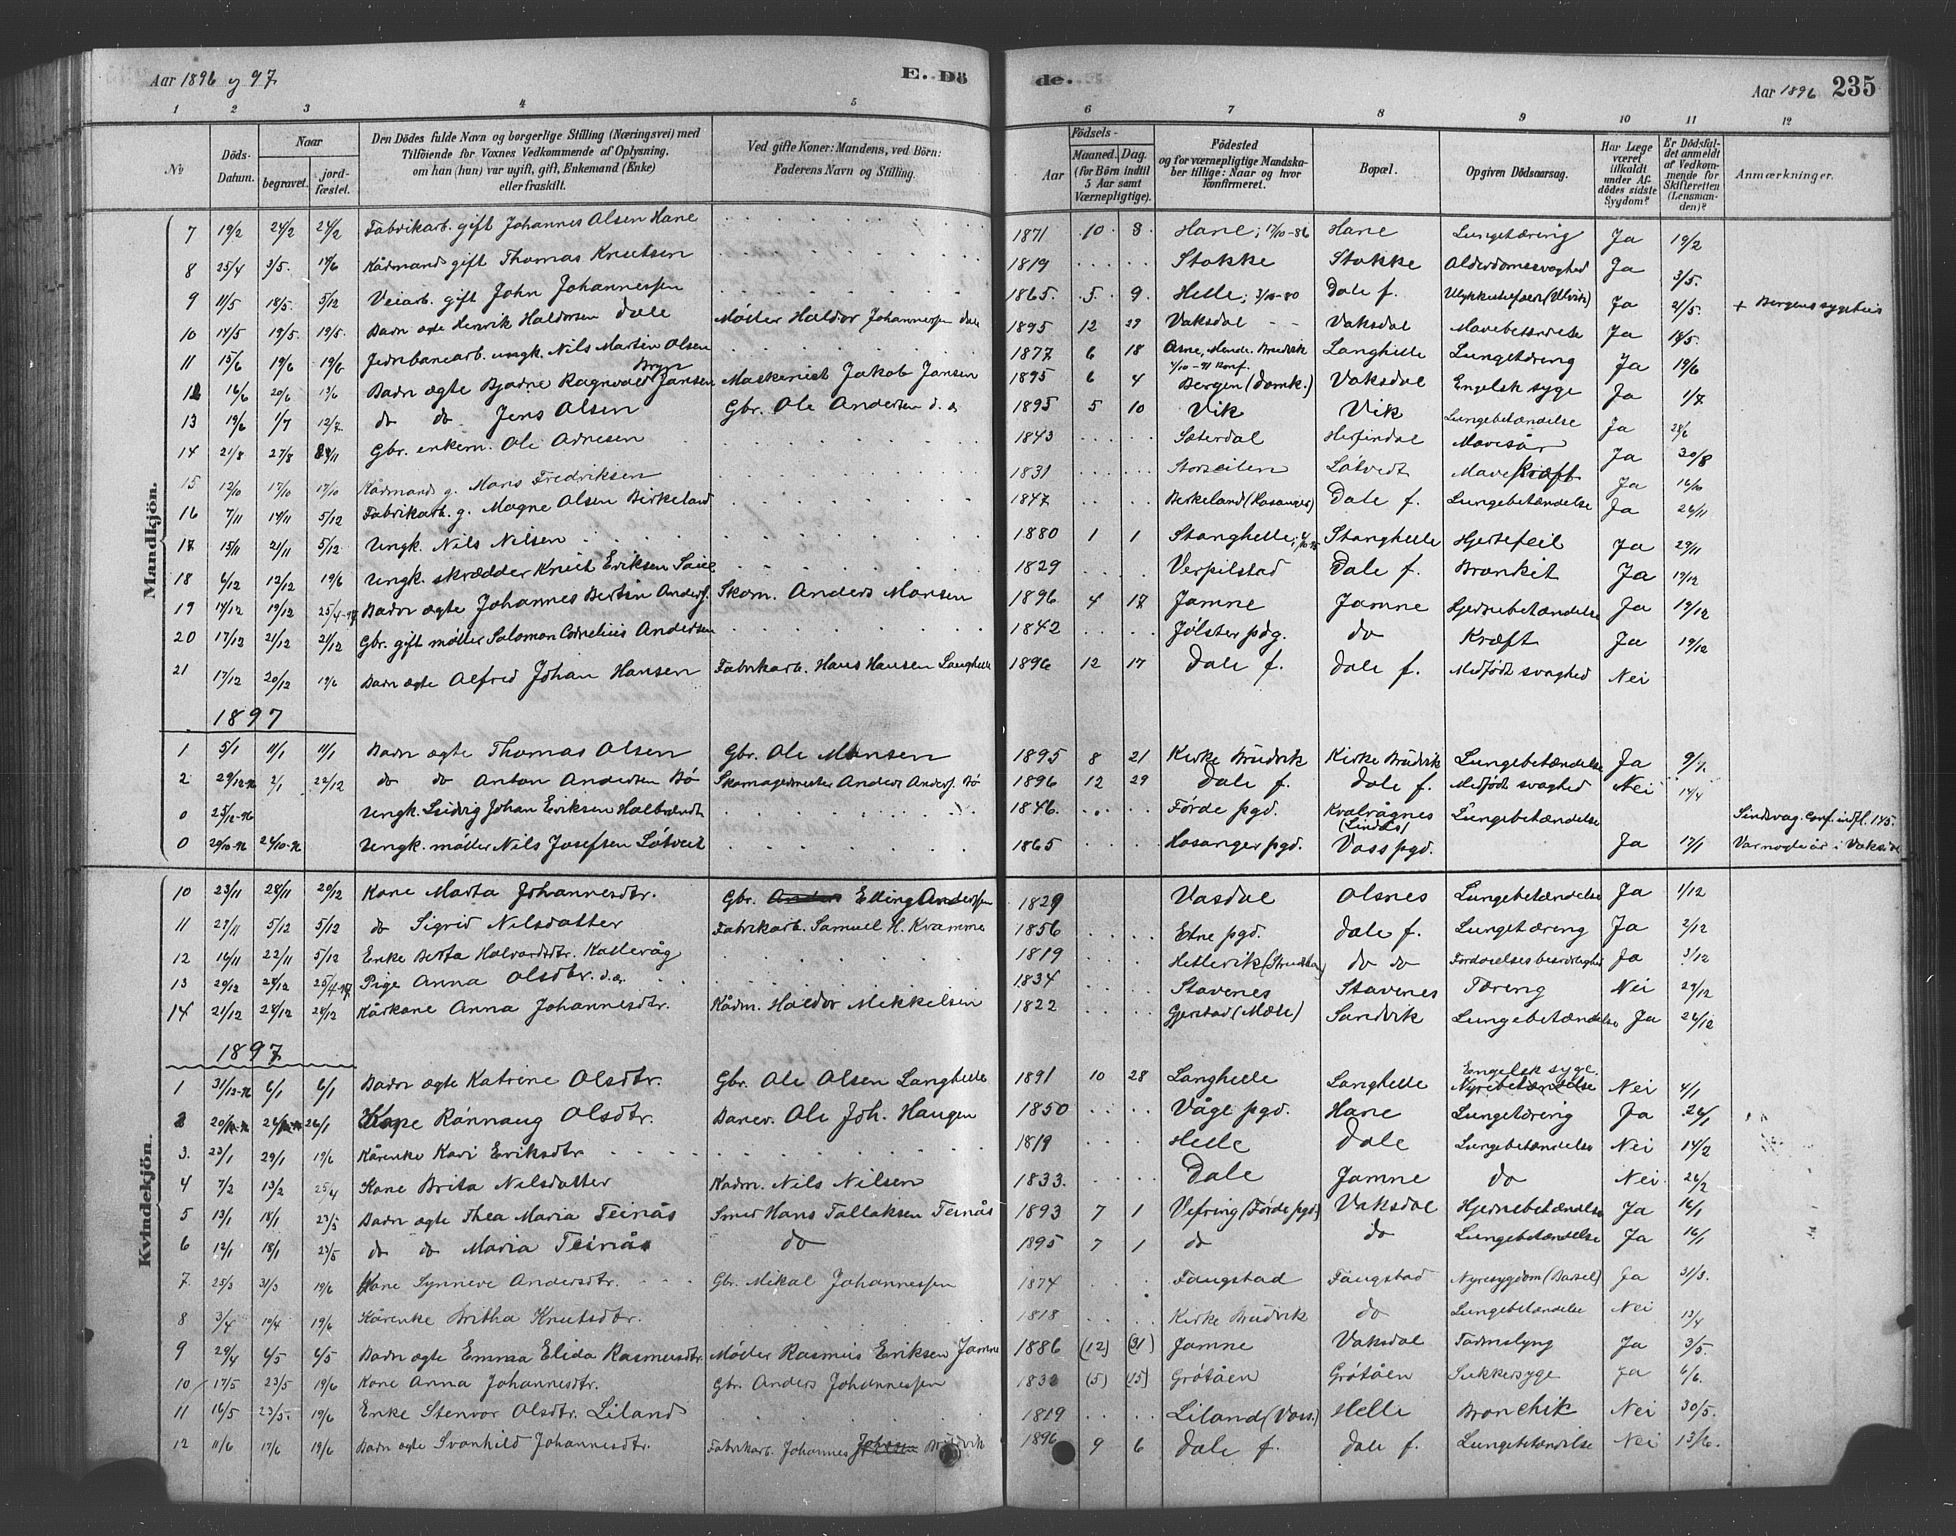 Aar 1896 og 97. E. Dö
de. Aar 1896 235
1 2 3 4 5 6 7 8 9 10 11 12
No Döds-Datum. Naar begravet. jord-fæstet. Den Dödes fulde Navn og borgerlige Stilling (Næringsvei) med Tilföiende for Voxnes Vedkommende af Oplysning, om han (hun) var ugift, gift, Enkemand (Enke) eller fraskilt. Ved gifte Koner: Mandens, ved Börn: Faderens Navn og Stilling. Födsels- Aar Maaned. Dag. (for Börn indtil 5 Aar samt Værnepligtige). Födested og for værnepligtige Mandskaber tillige: Naar og hvor konfirmeret. Bopæl. Opgiven Dödsaarsag. Har Læge været tilkaldt under Afdödes sidste Sygdom? Er Dödsfaldet anmeldt af Vedkommende for Skifteretten (Lensmanden)? Anmærkninger.
Mandkjön.
7 19/2 24/2 24/2 Fabrikarb. gift Johannes Olsen Hane 1871 10 8 Hane; 17/10-86 Hane Lungetæring Ja 19/2
8 25/4 3/5. 19/6 Kårmand gift Thomas Knutsen 1819 Stokke Stokke Alderdomssvaghed Ja 3/5.
9 11/5 18/5. 5/12 Veiarb. gift John Johannessen 1865. 5. 9. Helle; 3/10-80 Dale f. Ulykkestilfælde (Ulvik) Ja 21/5. + Bergens sygehus
10 14/5 19/5. 19/5. Barn ægte Henrik Haldorsen Dale Møller Haldor Johannessen Dale 1895 12 29 Vaksdal Vaksdal Mavebetændelse Ja 18/5.
11 15/6 19/6 19/6 Jernbanearb. ungk. Nils Martin Olsen Bryn 1877 6 18 Arne, Hende. Bruvik 4/10-91 konf. Langhelle Lungetæring Ja 19/6
12 16/6 20/6 19/6 Barn ægte Bjarne Ragnvald Jansen Maskinist Jakob Jansen 1895 6 4 Bergen (Domk.) Vaksdal Engelsk syge Ja 1/7
13 19/6 1/7 12/7. do do Jens Olsen Gbr. Ole Andersen d. æ 1895 5 10 Vik Vik Lungebetændelse Ja 28/6
14 21/8 27/8 29/11 Gbr. enkem. Ole Arnesen 1843 Sæterdal Herfindal Mavesår Ja 20/8
15 12/10 17/10 17/10 Kårmand g. Mons Fredriksen 1831 Storseilen Løtvedt Mavekræft Ja 16/10
16 7/11 14/11 5/12 Fabrikarb. g. Magne Olsen Birkeland 1847 Birkeland (Hosanger) Dale f. Lungebetændelse Ja 26/11
17 15/11 21/11 5/12. Ungk. Nils Nilsen 1880 1 1 Stanghelle; Stanghelle Hjertefeil Ja 29/11
18 6/12 12/12 19/6 Ungk. skrædder Knut Eriksen 1829 Verpilstad Dale f. Bronkit Ja 19/12
19 14/12 19/12 25/4-97 Barn ægte Johannes Bertin Anders. Skom. Anders Monsen 1896 4 17 Jamne Jamne Hjernebetændelse Ja 19/12
20 17/12 21/12 21/12 Gbr. gift møller Salomon Cornelius Andersen 1842 Jølster pgd. do Kræft Ja 19/12
21 17/12 20/12 19/6 Barn ægte Alfred Johan Hansen Fabrikarb. Hans Hansen Langhelle 1896 12 17 Dale f. Dale f. Medfødt svaghed Nei
1897
1 5/1 11/1 11/1 Barn ægte Thomas Olsen Gbr. Ole Monsen 1895 8 21 Kirke Bruvik Kirke Bruvik Lungebetændelse Ja 9/1.
2 29/12-96 2/1 22/12 do do Anton Andersen Bø Skomagermester Anders Anders. Bø 1896 12 29 Dale f. Dale f. Medfødt svaghed Nei 14/4
0 25/12-96 Ungk. Ludvig Johan Eriksen Halbrendt 1846. Førde pgd. Kvalvågnes (Lindås) Lungebetændelse Sindsvag. Conf. indfl. 145.
0 20/10-96 24/10-96 Ungk. møller Nils Josefsen Løtveit 1865 Hosanger pgd. Voss pgd. Ja 17/1 Var nogle år i Vaksdal
Kvindekjön.
10 23/11 28/11 20/12 Kone Marta Johannesdtr. Gbr. Elling Anderssen 1829 Vasdal Olsnes Lungebetændelse Ja 1/12
11 27/11 5/12 5/12 do Sigrid Nilsdatter Fabrikarb. Samuel H. Kvamme 1856 Etne pgd. Dale f. Lungetæring Ja 2/12
12 16/11 22/11 5/12 Enke Berta Halvardsdtr. Kallevåg 1819 Hellevik do do Fordøielsesbesværlighed Ja 3/12
13 20/12 28/12 25/4-97 Pige Anna Olsdtr. d.æ. 1834 Stavenes Stavenes Tæring Nei 29/12
14 21/12 28/12 28/12 Kårkone Anna Johannesdtr. Kårm. Haldor Mikkelsen 1822 Gjerstad (Mæle) Sandvik Lungebetændelse Ja 26/12
1897
1 31/12-96 6/1 6/1 Barn ægte Katrine Olsdtr. Gbr. Ole Olsen Langhelle 1891 10 28 Langhelle Langhelle Engelsk syge. Nyrebetændelse Nei 4/1
2 26/1 Kone Rønnaug Olsdtr. Banev. Ole Joh. Haugen 1850 Våge pgd. Hane Lungetæring Ja 26/1
3. 23/1 29/1 19/6 Kårenke Kari Eriksdtr 1819 Helle Dale Lungebetændelse Nei 14/2
4 7/2 13/2 25/4 Kone Brita Nilsdatter Kårm. Nils Nilsen 1833. Dale Jamne do Nei 26/2
5 13/1 18/1 23/5 Barn ægte Thea Maria Teinås Smed Hans Tollaksen Teinås 1893 7 1 Vefring (Førde pgd) Vaksdal Hjernebetændelse Ja 16/1
6 12/1 18/1 23/5 do do Maria Teinås do 1895 7 1 do do Lungebetændelse Ja 16/1
7. 25/3 31/3 19/6 Kone Synneve Andersdtr. Gbr. Mikal Johannessen 1874 Fangstad Fangstad Nyresygdom (Barsel) Ja 31/3.
8 3/4 10/4 19/6 Kårenke Britha Knutsdtr. 1818 Kirke Bruvik do Lungebetændelse Nei 13/4
9 29/4 6/5 6/5 Barn ægte Emma Elida Rasmusdtr. Møller Rasmus Eriksen Jamne 1886 (12) (31) Jamne Vaksdal Tarmslyng Ja 3/5.
10 17/5 23/5 19/6 Kone Anna Johannesdtr. Gbr. Anders Johannessen (5) (15) Grøtåen Grøtåen Sukkersyge Ja 6/6.
11 16/5 23/5. 19/6 Enke Stenvor Olsdtr. Liland 1819 Liland (Voss.) Helle Bronchik Nei 30/5.
12 11/6 17/6 19/6 Barn ægte Svanhild Johannesdtr. Fabrikarb. Johannes Johnsen Bruvik 1896 9 6 Dale f. Dale f. Lungebetændelse Nei 13/6.